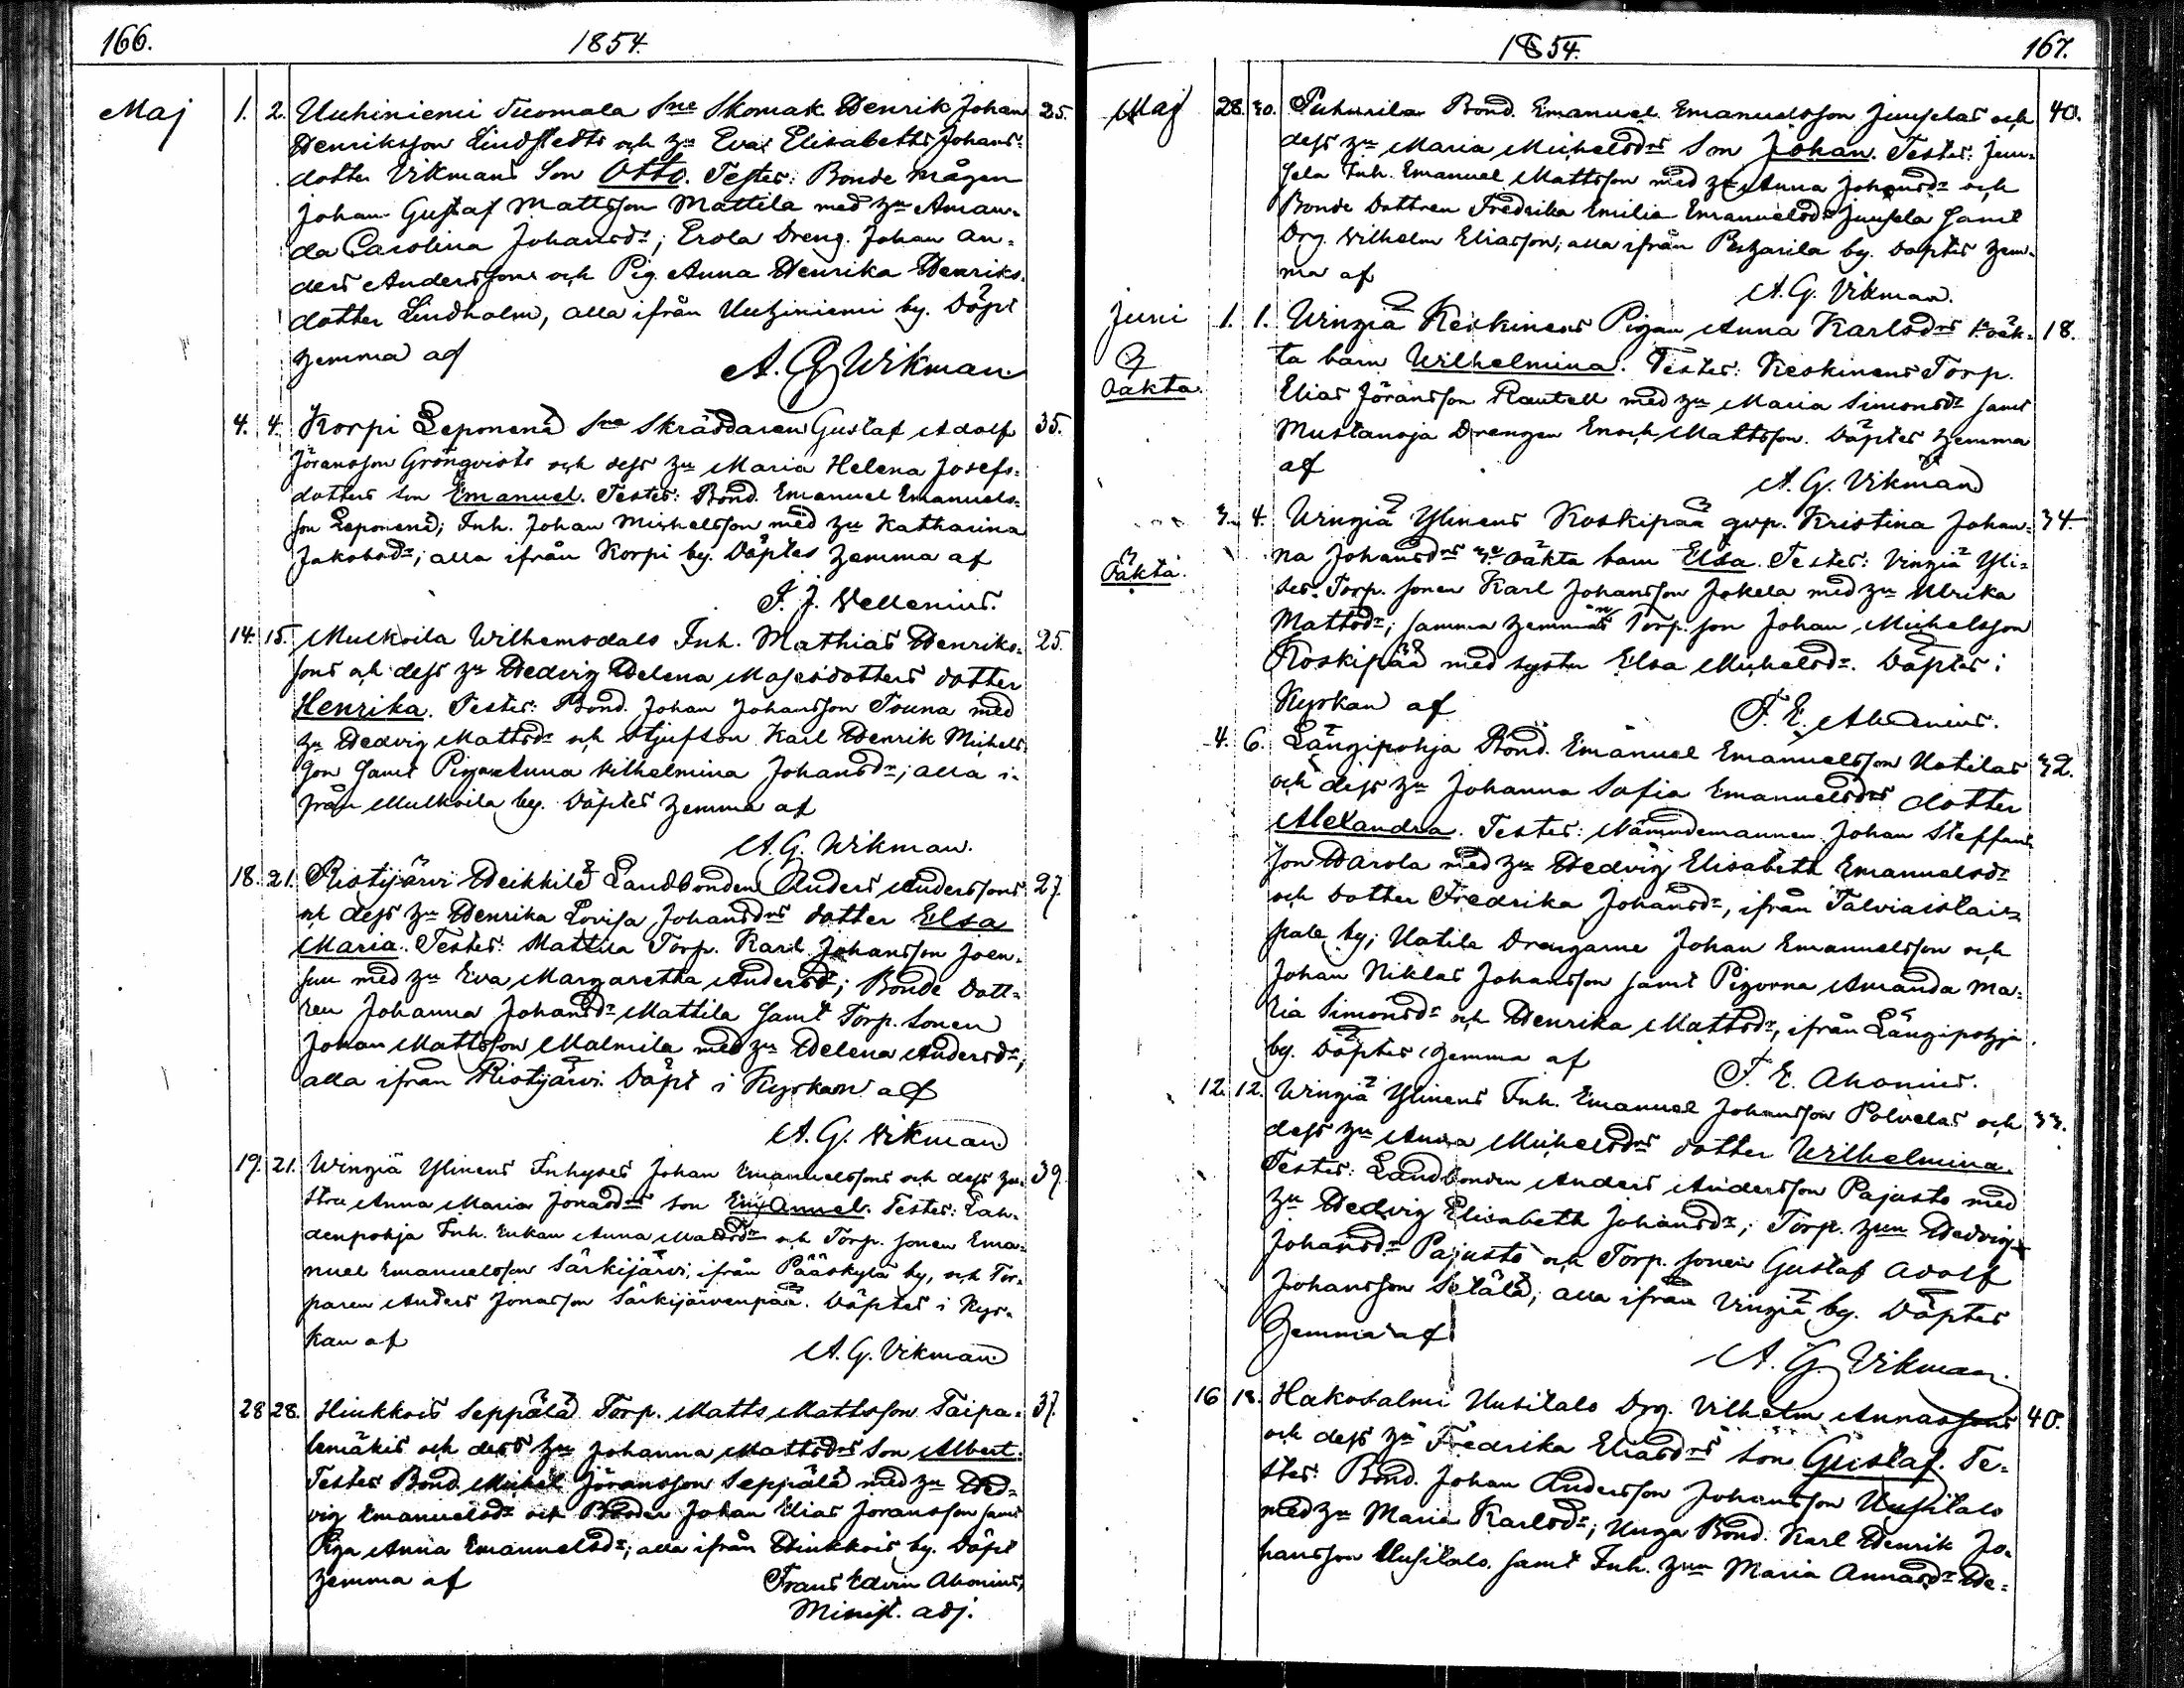 166.
1854.
Maj
1. 2. Uuhiniemi Tuomala Sne Skomak. Henrik Johan 25.
Henriksson Lindstedts och hu Eva Elisabeths Johans-
dotter Vikmans Son Otto. Testes: Bonde mågen
Johan Gustaf Mattsson Mattila med hu Aman-
da Carolina Johansdr; Erola Dreng. Johan An-
ders Andersson och Pig. Anna Henrika Henriks-
dotter Lindholm, alla ifrån Uuhiniemi by. Döpt
hemma af
A. G. Wikman
4. 4. Korpi Leponens Sne Skräddaren Gustaf Adolf 35.
Jöransson Grönqvists och dess hu Maria Helena Josefs-
dotters son Emanuel. Testes: Bond. Emanuel Emanuels-
son Leponend; Inh. Johan Michelsson med hu Katharina
Jakobsdr; alla ifrån Korpi by. Döptes hemma af
F. J. Wellenius.
14. 15. Mulkoila Wilhemsdals Inh. Mathias Henriks- 25.
sons och dess hu Hedvig Helena Mosesdotters dotter
Henrika. Testes: Bond. Johan Johansson Touna med
hu Hedvig Mattsdr och Stjufson Karl Henrik Michels-
son samt Pigan Anna Vilhelmina Johansdr; alla i-
från Mulkoila by. Döptes hemma af
A. G. Wikman.
18. 21. Ristijärvi Heikkilä Landbonden Anders Anderssons 27.
och dess hu Henrika Lovisa Johansdrs dotter Elsa
Maria. Testes: Mattila Torp. Karl Johansson Joen-
suu med hu Eva Margaretha Andersdr; Bonde Dott-
ren Johanna Johansdr Mattila samt Torp. Sonen
Johan Mattsson Malmila med hu Helena Andersdr;
alla ifrån Ristijärvi. Döpt i Kyrkan af
A. G. Vikman
19. 21. Winhiä Ylinens Inhyses Johan Emanuelssons och dess hu- 39.
stru Anna Maria Jonasdrs son Emanuel. Testes: Lah-
denpohja Inh. Enkan Anna Mattsdr och Torp. Sonen Ema-
nuel Emanuelsson Särkijärvi, ifrån Pääskylä by, och Tor-
paren Anders Jonasson Särkijärvenpää. Döptes i Kyr-
kan af
A. G. Vikman
28 28. Hinkkois Seppälä Torp. Matts Mattsson Taipa- 37.
lemäkis och dess hu Johanna Mattsdrs Son Albert.
Testes Bond. Michel Jöransson Seppälä med hu Hed-
vig Emanuelsdr och Bonden Johan Elias Jöransson samt
Piga Anna Emanuelsdr; alla ifrån Hinkkois by. Döpt
hemma af
Frans Edvin Ahonius,
Minist. adj.
1854.
167.
Maj 28. 30. Puhurila Bond. Emanuel Emanuelsson Junselas och 40.
dess hu Maria Michelsdrs Son Johan. Testes: Jun-
sela Inh. Emanuel Mattsson med hu Anna Johansdr och
Bonde Dottren Fredrika Emilia Emanuelsdr Junsela samt
Drg. Vilhelm Eliasson; alla ifrån by. Döptes hem-
ma af
A. G. Vikman.
Juni 1. 1. Winhiä Keskinens Pigan Anna Karlsdrs 1:a oäk- 18.
Oäkta.
ta barn Wilhelmina. Testes: Keskinens Torp.
Elias Jöransson Rautell med hu Maria Simonsdr samt
Mustanoja Drengen Enoch Mattsson. Döptes hemma
af
A. G. Vikman
3. 4. Winhiä Ylinens Koskipää qvp. Kristina Johan- 34.
Oäkta.
na Johansdrs 3:e oäkta barn Elsa. Testes: Vinhiä Yli-
ses Torp. sonen Karl Johansson Jokela med hu Ulrika
Mattsdr; samma hemmans Torp. son Johan Michelsson
Koskipää med syster Elsa Michelsdr. Döptes i
Kyrkan af
F. E. Ahonius.
4. 6. Längipohja Bond. Emanuel Emanuelsson Uotilas 32.
och dess hu Johanna Sofia Emanuelsdrs dotter
Alexandra. Testes: Nämndemannen Johan Steffans-
son Harola med hu Hedvig Elisabeth Emanuelsdr
och Dotter Fredrika Johansdr, ifrån Talviaistai-
pale by; Uotila Drengarne Johan Emanuelsson och
Johan Niklas Johansson samt Pigorna Amanda Ma-
ria Simonsdr och Henrika Mattsdr, ifrån Längipohja
by. Döptes hemma af
F. E. Ahonius.
12. 12. Winhiä Ylinens Inh. Emanuel Johansson Polvelas och 33.
dess hu Anna Michelsdrs dotter Wilhelmina.
Testes: Landbonden Anders Andersson Pajusto med
hu Hedvig Elisabeth Johansdr; Torp. hun Hedvig
Johansdr Pajusto och Torp. sonen Gustaf Adolf
Johansson Setälä; alla ifrån Vinhiä by. Döptes
hemma af
A. G. Vikman.
16 18. Hakosalmi Uusitalo Drg. Vilhelm Annassons 40.
och dess hu Fredrika Eliasdrs son Gustaf. Te-
stes: Bond. Johan Andersson Johansson Uusitalo
med hu Maria Karlsdr; Unga Bond. Karl Henrik Jo-
hansson Uusitalo. samt Inh. hun Maria Annasdr He-